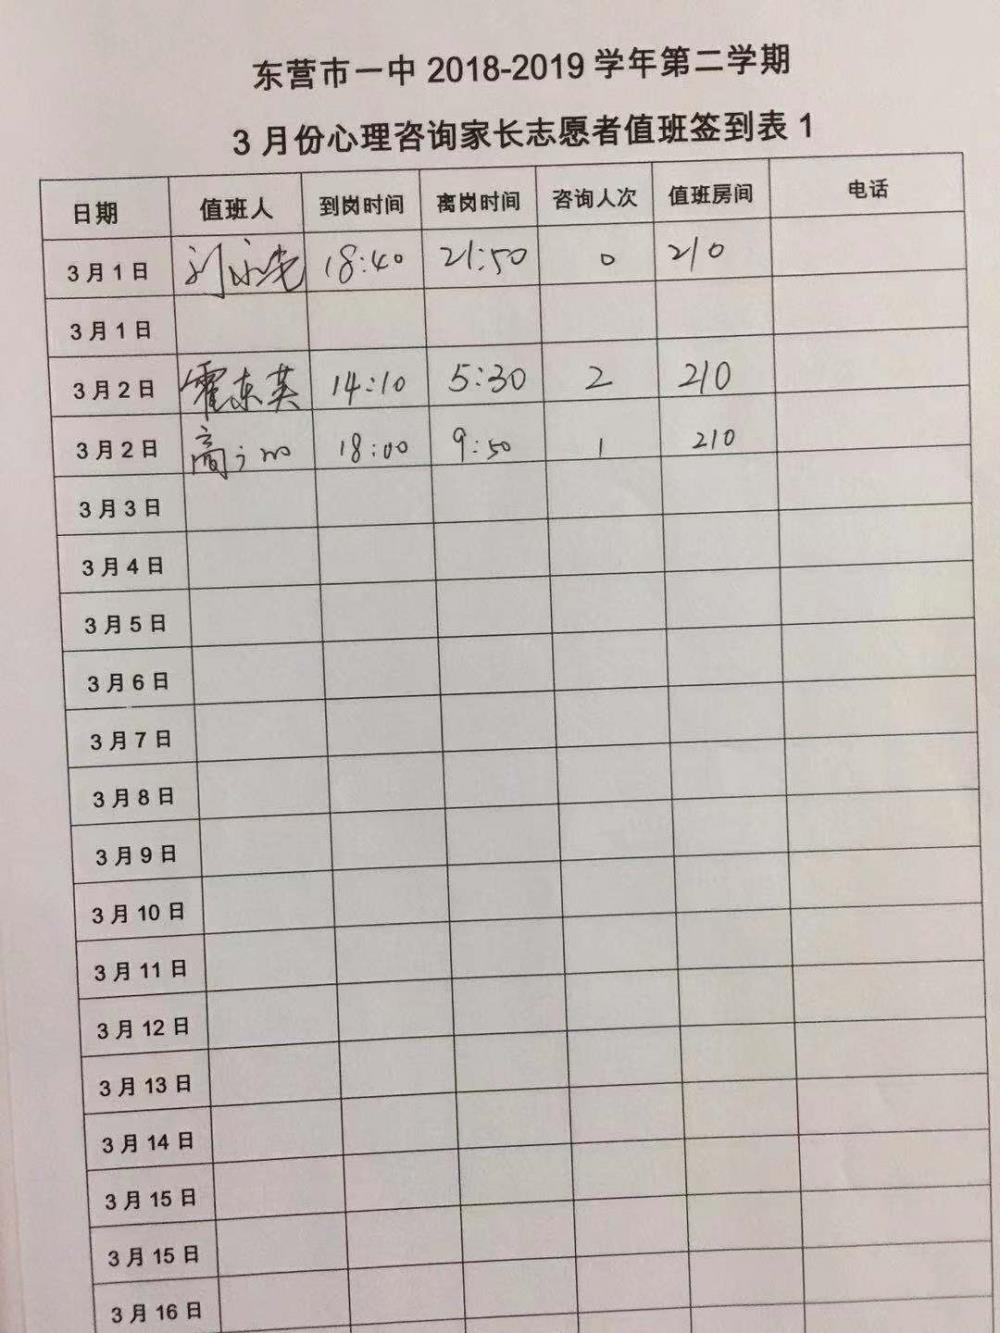 东营市一中 2018-2019 学年第二学期
3 月份心理咨询家长志愿者值班签到表 1
日期 值班人 到岗时间 离岗时间 咨询人次 值班房间 电话
3 月 1 日 刘 18:40 21:50 0 210
3 月 1 日
3 月 2 日 霍东英 14:10 5:30 2 210
3 月 2 日 18:00 9:50 1 210
3 月 3 日
3 月 4 日
3 月 5 日
3 月 6 日
3 月 7 日
3 月 8 日
3 月 9 日
3 月 10 日
3 月 11 日
3 月 12 日
3 月 13 日
3 月 14 日
3 月 15 日
3 月 15 日
3 月 16 日